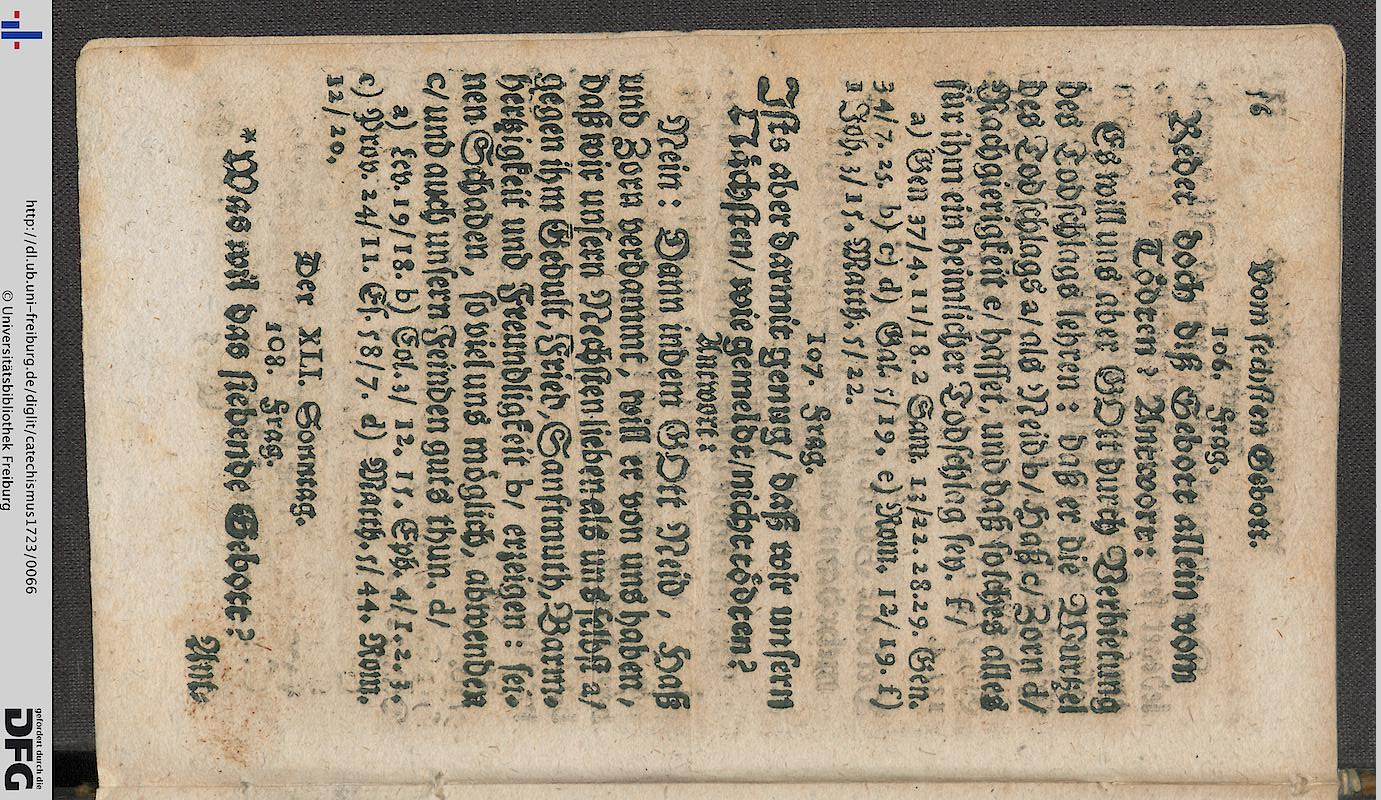 56
Vom sechsten Gebott.
106. Frag.
Redet doch diß Gebott allein vom
Tödten? Antwort:
Es will uns aber GOtt durch Verbietung
des Todschlags lehren: daß er die Wurzel
des Todschlags a/ als Neid b/ Haß c/ Zorn d/
Rachgierigkeit e/ hasset, und daß solches alles
für ihm ein heimlicher Todschlag sey. f/
a) Gen 37/4. 11/18. 2 Sam 13/22. 28.29. Gen.
34/7. 25. b) c) d) Gal. 5/19. e) Rom. 12/19. f)
1 Joh. 3/15. Matth. 5/22.
107. Frag.
Ists aber darmit genug/ daß wir unsern
Nächsten/ wie gemeldt/ nicht tödten?
Antwort:
Nein: Dann indem GOtt Neid, Haß
und Zorn verdammt, will er von uns haben,
daß wir unsern Nechsten lieben als uns selbst a/
gegen ihm Gedult, Fried, Sanftmuth, Barm-
hertzigkeit und Freundligkeit b/ erzeigen: sei-
nen Schaden, so viel uns möglich, abwenden
c/ und auch unsern Feinden guts thun. d/
a) Lev. 19/18. b) Col. 3/12. 15. Eph. 4/1. 2. 3.
c) Prov. 24/11. Es. 58/7. d) Matth. 5/44. Rom.
12/20.
Der XLI. Sonntag.
108. Frag.
*Was wil das siebende Gebott?
Ant.
http://dl.ub.uni-freiburg.de/diglit/catechismus1723/0066
© Universitätsbibliothek Freiburg
gefördert durch die
DFG